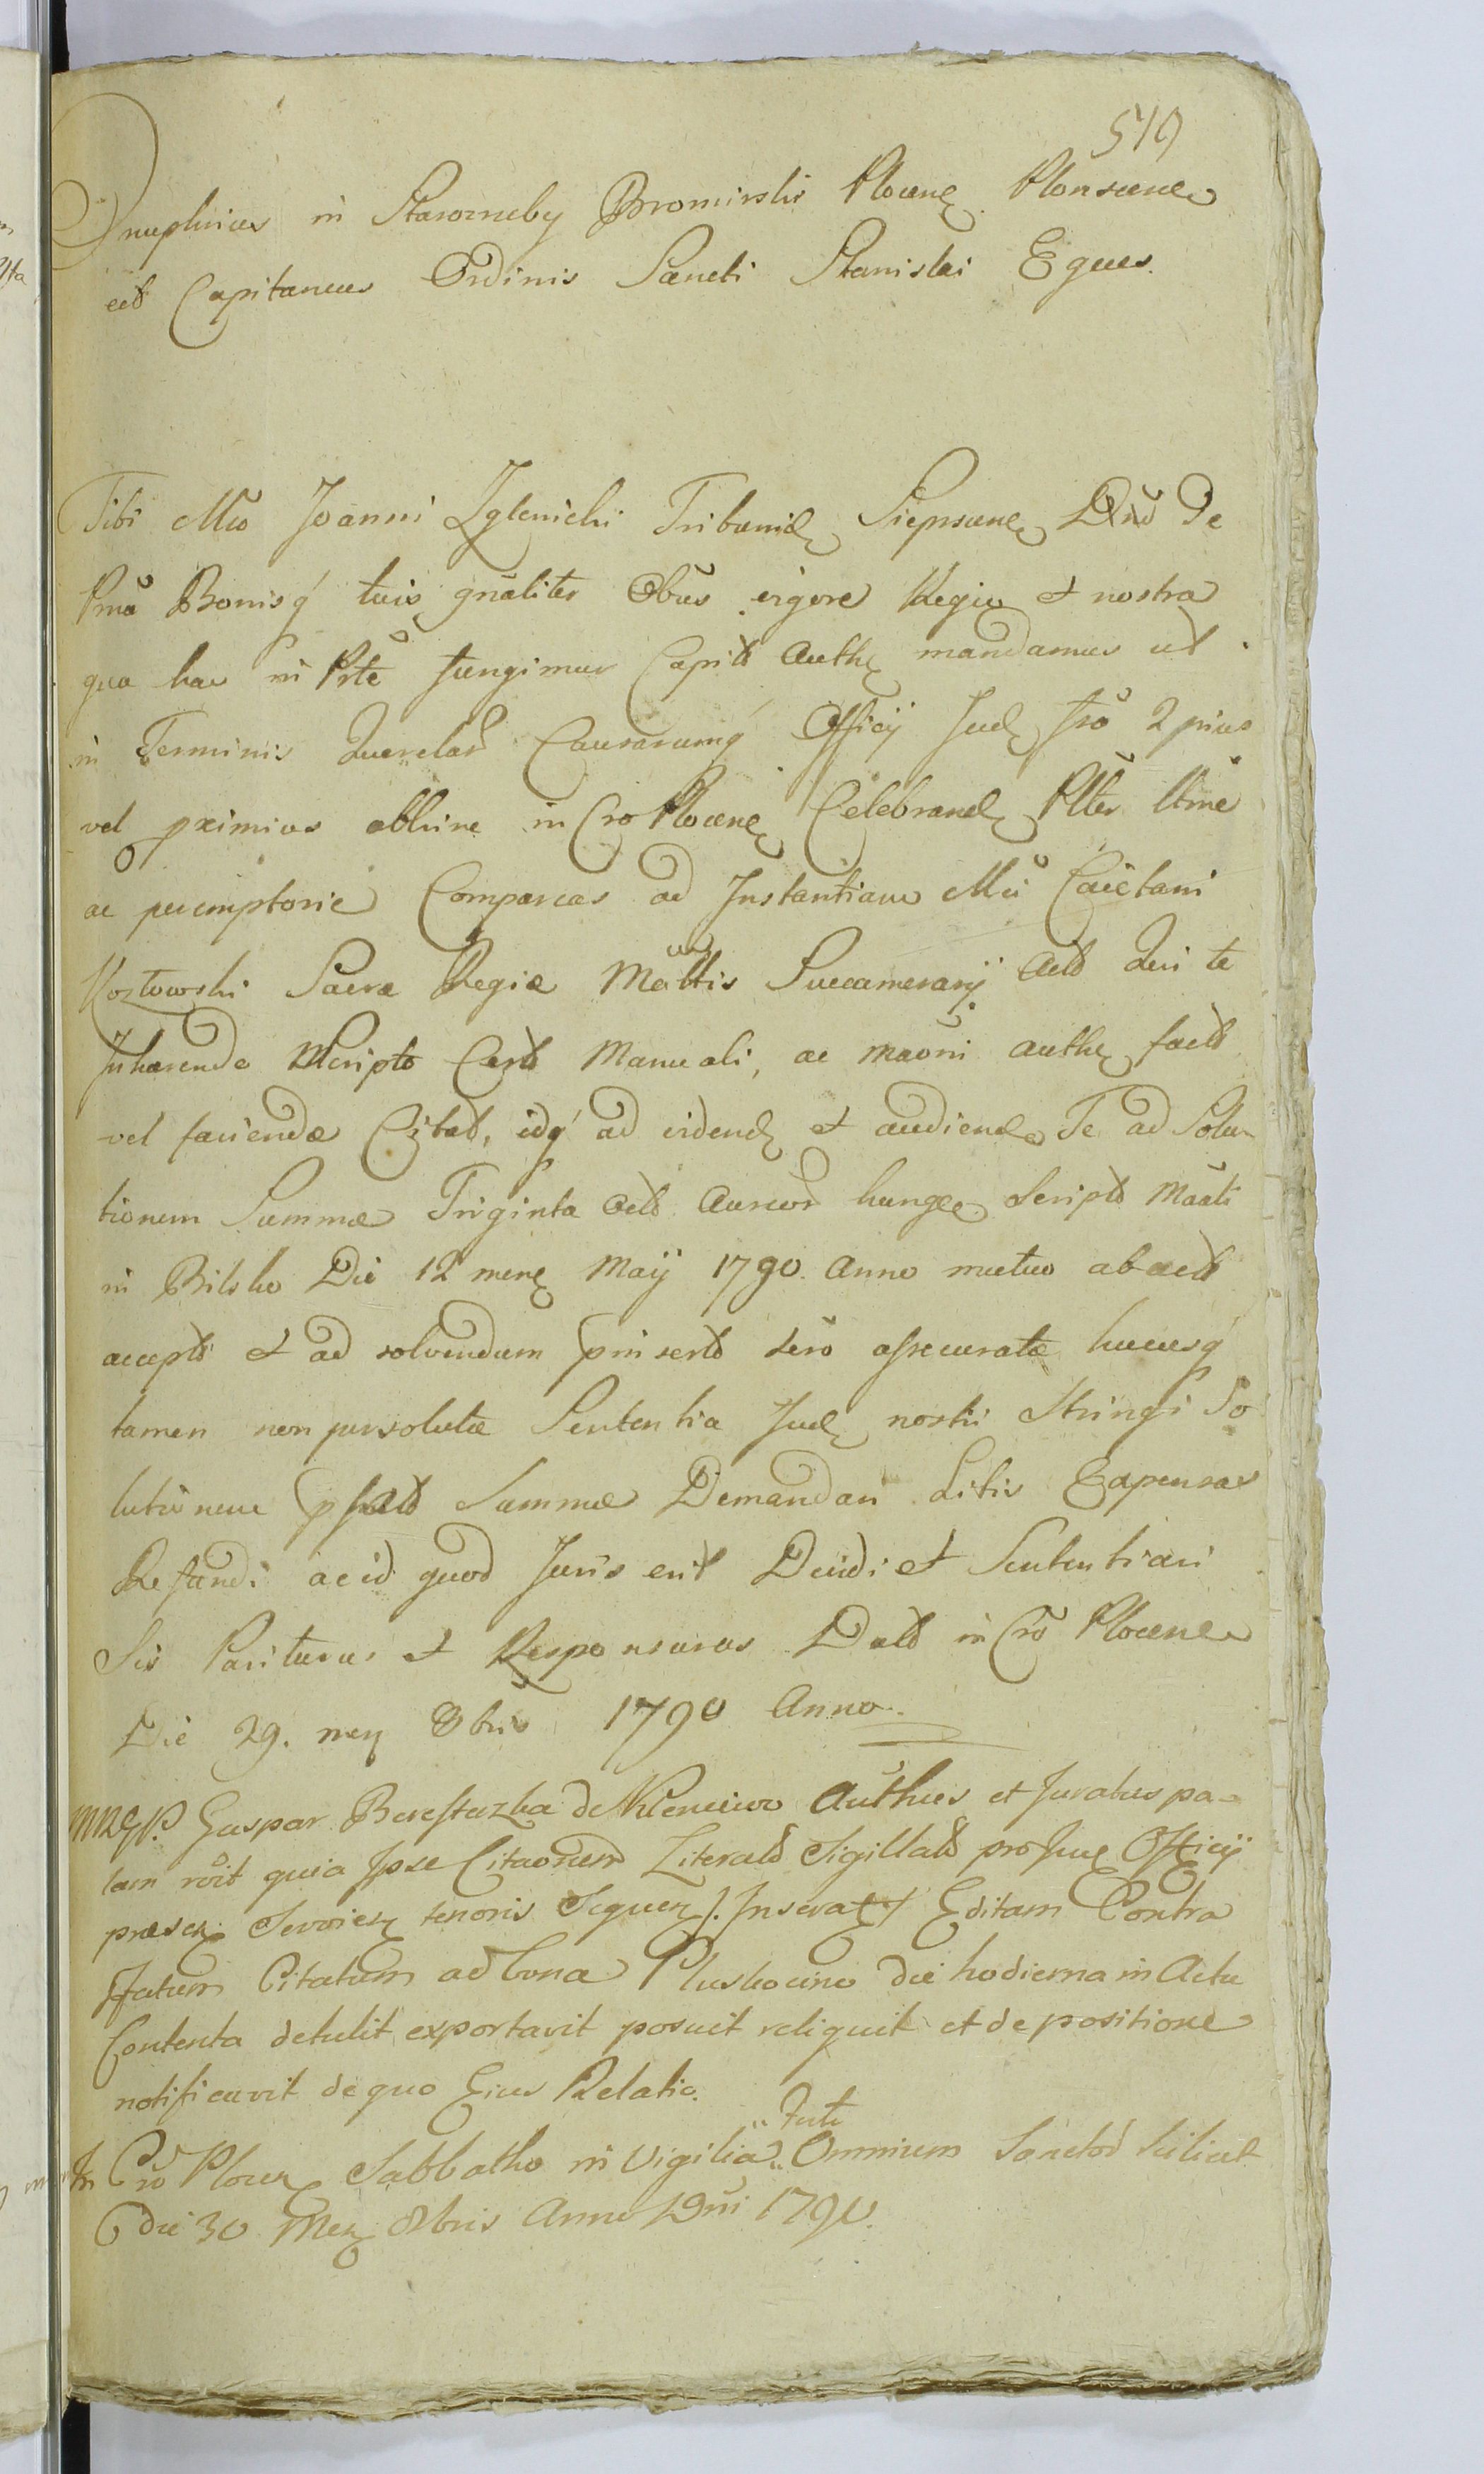 519
Onuphrius in Starorzreby Bromirski Plocen Plonscen
etd Capitaneus Ordinis Sancti Stanislai Eques.
Tibi Mco Joanni Zglenicki Tribunid Siepscen Dnõ De
Prnã Bonisq tuis gnãliter Obũs vigore Regia et nostra
qua hac in Prtẽ fungimur Capitd Auth mandamus ut
in Terminis Querelard Causarumq Officij Jud frõ 2 pius
vel pximius abhinc in Cro Plocen Celebrand Plter ltimè
ac peremptorie Compareas ad Instantiam Mci Caietani
Kozłowski Sacræ Regiæ Mãttis Succamerarij Actd Qui te
Inhærendo Scripto Certd Manuali, ac maõni auth factd
vel faciendæ Citatd, idq ad vidend et audiend Te ad Solu-
tionem Summæ Triginta Octd Aureord hungd Scriptd Mãali
in Bilsko Die 12 mens Maÿ 1790. Anno mutuo ab actd
acceptd et ad solvendum pinsertd serõ assecuratæ hucusq
tamen non persolutæ Sententia Jud nostri Stringi So
lutionem psfatd Summæ Demandari Litis Expensas
Refundi ac id quod Juris erit Decidi et Sententiari
Sis Pariturus et Responsurus Datd in Crõ Plocen
Die 29. men 8bris 1790 Anno.
MRGP. Gaspar Beresteczka de Authus et Juratus pa-
lam rõit quia Ipse Citaõnem Literatd Sigillatd pro Jud Officij
præsen Servien tenoris Sequen /: Inserat :/ Editam Contra
Jfatum Citatum ad bona Pluskocino die hodierna in Actu
Contenta detulit exportavit posuit reliquit et de positione
notificavit de quo Eius Relatio.
Festi
In Crõ Plocen Sabbatho in Vigilia Omnium Sanctod Scilicet
die 30 Men 8bris Anno Dni 1790.